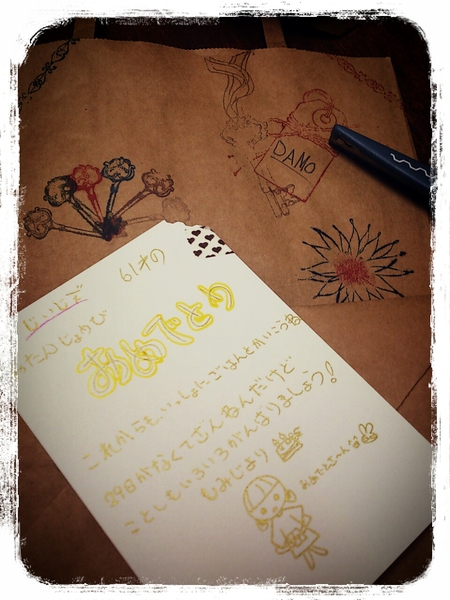 DAMO
61才の
たんじょうび
おめでとう
これからも、いっしょにごはんとかいこうね
29日がなくてざんねんだけど
ことしもいろいろがんばりましょう!
もみじより